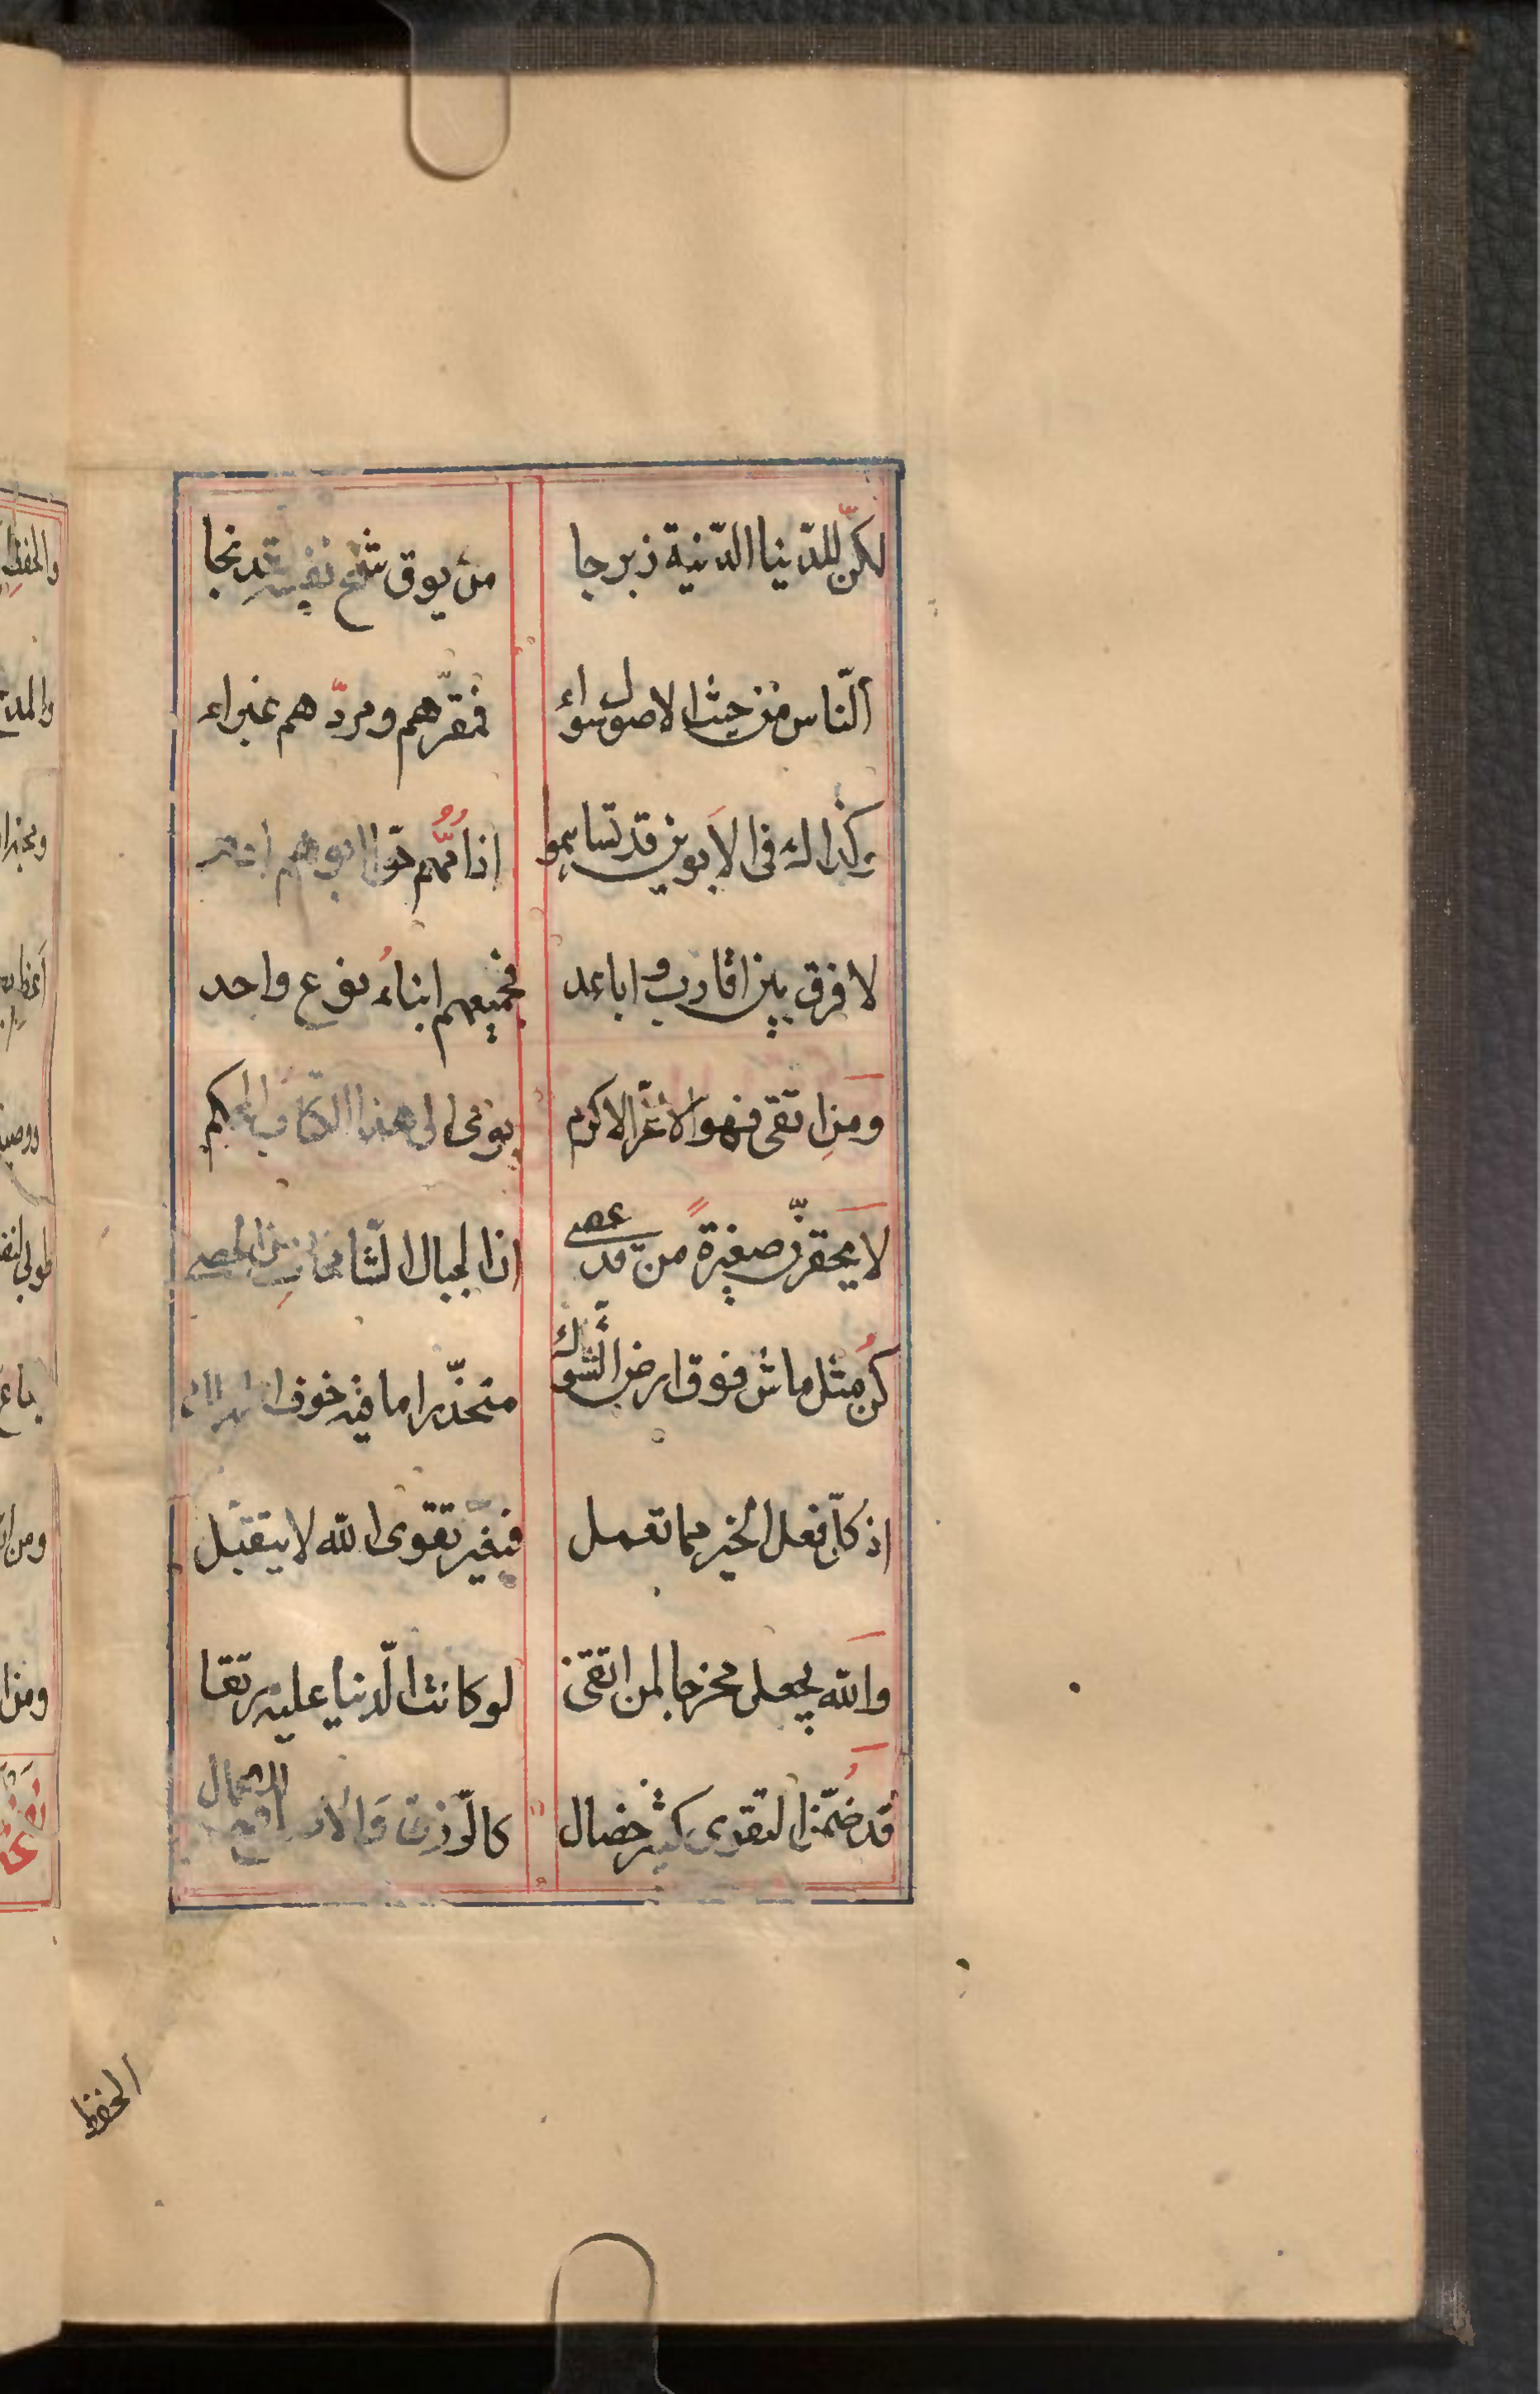 لكنّ للدّنيا الدّنية زبرجا من يوق شحّ نفسه قد نجا
ألنّاس من حيث الاصول سواء فمقرّهم ومردّهم غبراء
وكذاك فى الأبوين قد تساهموا اذ امّهم حوّا ابوهم
لا فرق بين اقارب واباعد فجميعهم ابناءُ نوع واحد
ومنِ اتقى فهو الأعزّ الاكرم يومى الى هذا الكتاب المحكم
لا يحقرنّ صغيرة من قد عصى اذ الجبال الشّامخات من الحصى
كُن مثل ماش فوق ارض الشّوك متحذّرا ما فيه خوف
اذ كلّ فعل الخير مما تعمل فبغير تقوى الله لا يتقبّل
والله يجعل مخرجا لمن اتقى لو كانت الدّنيا عليه رتقا
قد ضُمّن التقوى كثير خصال كالرّزق
الحفظ